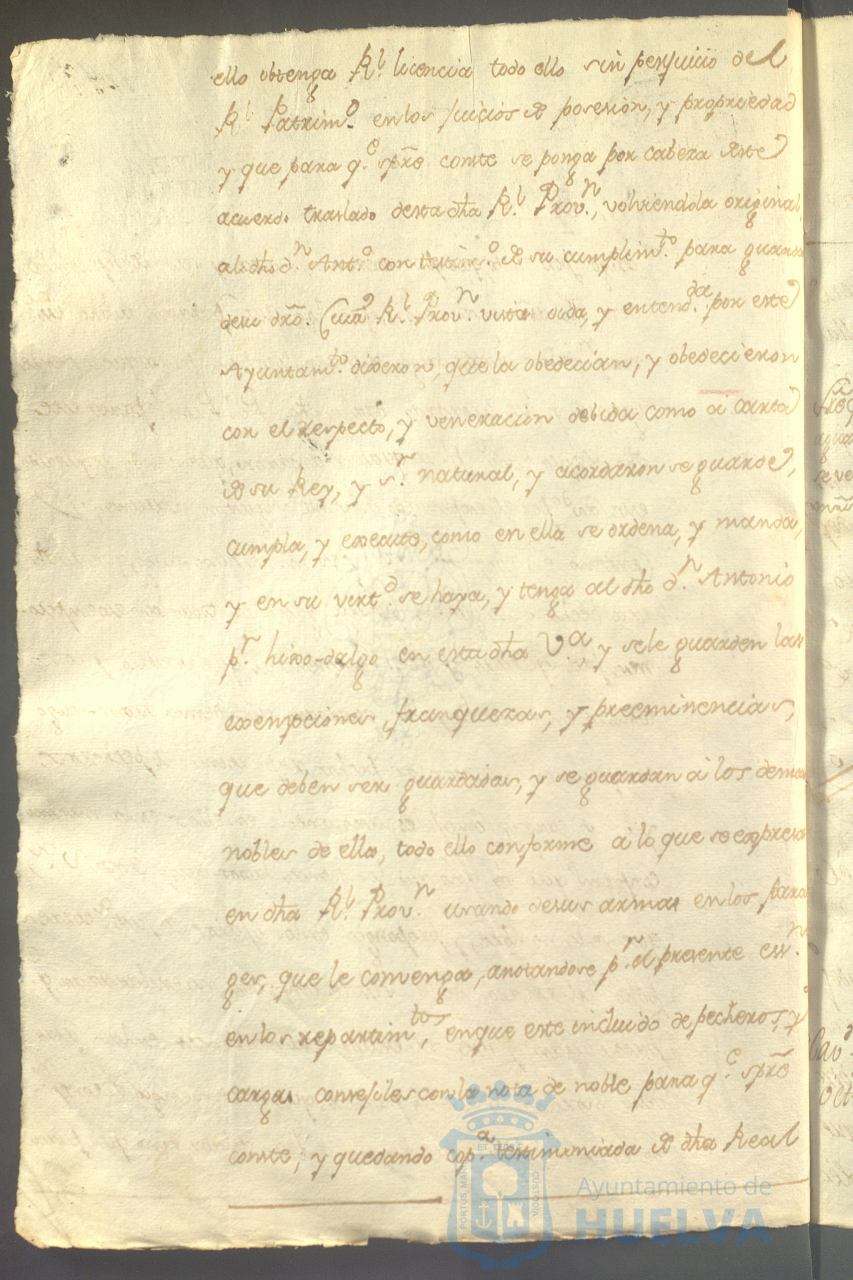 ello obtenga Rl. licencia todo ello sin perjuicio del
Rl. Patrimo. en los juicios de posesion, y propriedad
y que para qe. spre conste se ponga por cabeza deste
acuerdo traslado desta dha Rl. Provn., volviendola original
al dho dn. Anto. con testimo. de su cumplimto. para guarda
desu dro. Cuia Rl. Provn. vista oida, y entendda. por este
Ayuntamto. dixeron, que la obedecian, y obedecieron
con el respecto, y veneracion debida como a carta
de su Rey, y sr. natural, y acordaron se guarde,
cumpla, y execute, como en ella se ordena, y manda,
y en su virtd. se haya, y tenga al dho dn. Antonio
pr. hixo-dalgo en esta dha Va., y sele guarden las
exempciones, franquezas, y preeminencias,
que deben ser guardadas, y se guardan a los demas
nobles de ella, todo ello conforme a lo que se expresa
en dha Rl. Provn. usando desus armas en los para
ges, que le convenga, anotandose pr. el presente essn.
en los repartimtos, enque este incluido de pecheros, y
cargas consejiles con la nota de noble para qe. spre
conste, y quedando copa. testimoniada de dha Real
Ayuntamiento de
HUELVA